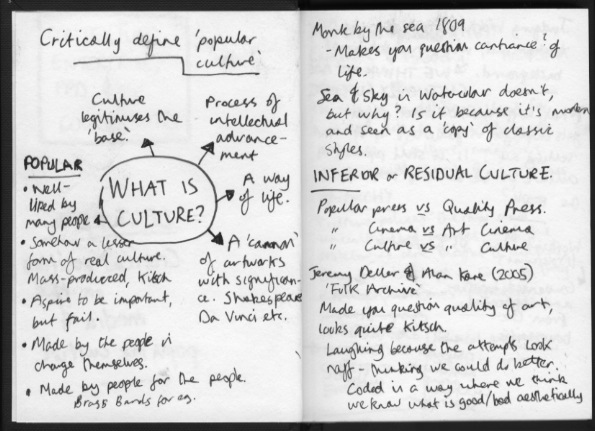 Critically define 'popular
culture'
Culture
legitimises the
'base'.
Process of
intellectual
advance-
ment
WHAT IS
CULTURE?
A way
of life.
A 'cannon'
of artworks
with significan-
ce. Shakespeare
Da Vinci etc.
POPULAR
• Well-
liked by
many people
• Somehow a lesser
form of real culture.
Mass-produced, Kitsch
• Aspire to be important,
but fail.
• Made by the people
change themselves.
• Made by people for the people.
Brass Bands for eg.
Monk by the sea 1809
- Makes you question of
life.
Sea & Sky in Watercolour doesn't,
but why? Is it because it's modern
and seen as a 'copy' of classic
styles.
INFEROR or RESIDUAL CULTURE.
Popular press vs Quality Press.
" Cinema vs Art Cinema
" Culture vs " Culture
Jeremy Deller & Alan Kane (2005)
'Folk Archive'
Made you question quality of art,
looks quite kitsch.
Laughing because the attempts look
naff - thinking we could do better.
Coded in a way where we think
we know what is good/bad aesthetically